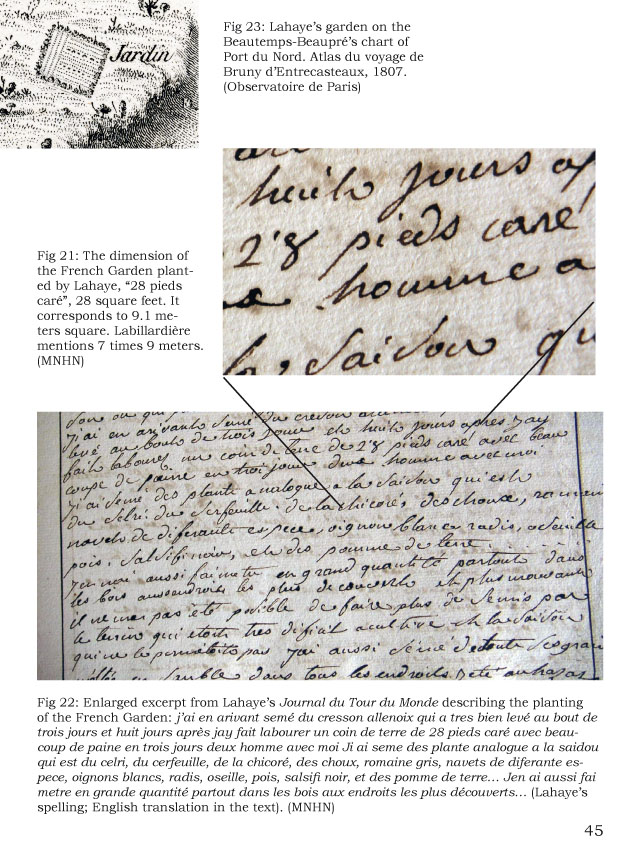 Jardin
Fig 23: Lahaye's garden on the
Beautemps-Beaupré's chart of
Port du Nord. Atlas du voyage de
Bruny d'Entrecasteaux, 1807.
(Observatoire de Paris)
huith jours
28 pieds caré
homme a
Saidou qu
Fig 21: The dimension of
the French Garden plant-
ed by Lahaye, “28 pieds
caré”, 28 square feet. It
corresponds to 9.1 me-
ters square. Labillardière
mentions 7 times 9 meters.
(MNHN)
j'ai en arivant semé du creson
levé au bout de trois jours et huith jours apres jay
fait labourer un coin de tere de 28 pieds caré avec beau
coupe de paine en troi jour deux homme avec moi
j'ai semé des plante analogue a la saidou qui est
du Selri du Serfeuille de la chicoré, des choux, romain
navets de diferante espece, oignon blance radis, oseille
pois, Salsifi noir, et des pomme de tere
jen nai aussi fai metre en grand quantité partout dans
les bois aux endroits les plus deconverte et plus
il ne mas pas eté posible de faire plus de Semis par
le terin qui etoit tres dificil a cultive et la Saidou
qui ne le permetoit pas j'ai aussi Semé de toute
dans tous les endroits
Fig 22: Enlarged excerpt from Lahaye's Journal du Tour du Monde describing the planting
of the French Garden: j'ai en arivant semé du cresson allenoix qui a tres bien levé au bout de
trois jours et huit jours après jay fait labourer un coin de terre de 28 pieds caré avec beau-
coup de paine en trois jours deux homme avec moi Ji ai seme des plante analogue a la saidou
qui est du celri, du cerfeuille, de la chicoré, des choux, romaine gris, navets de diferante es-
pece, oignons blancs, radis, oseille, pois, salsifi noir, et des pomme de terre… Jen ai aussi fai
metre en grande quantité partout dans les bois aux endroits les plus découverts… (Lahaye's
spelling; English translation in the text). (MNHN)
45